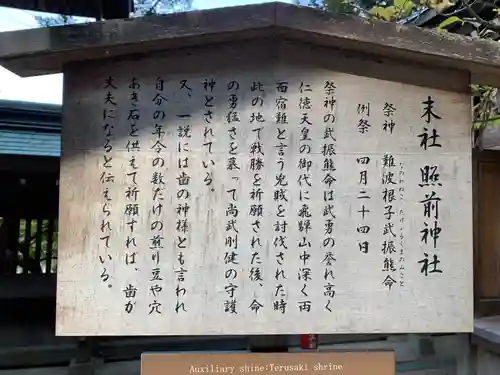 末社 照前神社
祭神 難波根子武振熊命
なにわねこ たけふるくまのみこと
例祭 四月二十四日
祭神の武振熊命は武勇の誉れ高く
仁徳天皇の御代に飛騨山中深く両
面宿儺と言う兇賊を討伐された時
此の地で戦勝を祈願された後、命
の勇猛さを慕って尚武剛健の守護
神とされている。
又、一説には歯の神様とも言われ
自分の年令の数だけの煎り豆や穴
あき石を供えて祈願すれば、歯が
丈夫になると伝えられている。
Auxiliary shine:Terusaki shrine